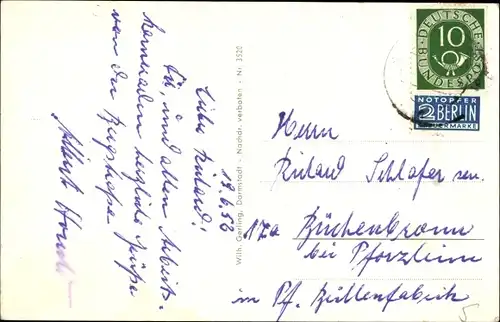 19.6.52
Lieber Richard!
Dir, und allen Arbeits-
kameraden herzliche Grüße
von der Bergstraße
Albert
Wilh. Gerling, Darmstadt - Nachdr. verboten - Nr. 3520
DEUTSCHE BUNDESPOST
10
NOTOPFER
2 BERLIN
STEUERMARKE
Herrn
Richard Schlafer sen.
17a Büchenbronn
bei Pforzheim
im Pf.
5